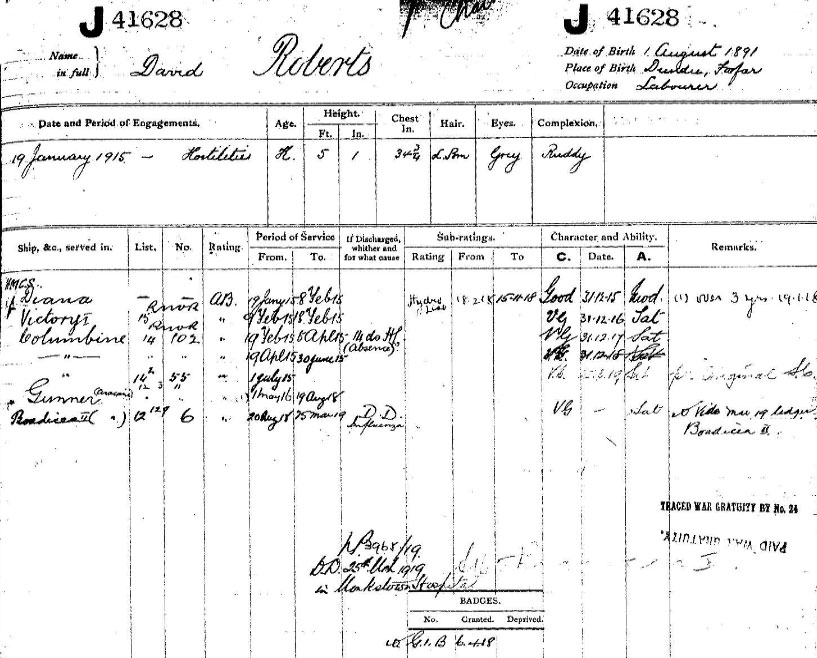 J 41628 J 41628
Name in full } David Roberts
Date of Birth 1 August 1891
Place of Birth Dundee, Forfar
Occupation Labourer
Date and Period of Engagements. Age. Height. Ft. In. Chest In. Hair. Eyes. Complexion.
19 January 1915 — Hostilities H. 5 1 34 3/4 Grey Ruddy
Ship, &c., served in. List. No. Rating. Period of Service From. To. If Discharged, whither and for what cause Sub-ratings. Rating From To Character and Ability. C. Date. A. Remarks.
Diana — AB. 19 Jany 15 8 Feb 15 Hydro 18.2.18 15-11-18 Good 31.12.15 Mod. (1) over 3 yrs. 19.1.18
Victory I 15 " 9 Feb 15 18 Feb 15 VG 31.12.16 Sat
Columbine 14 102 " 19 Feb 15 (Absence) VG 31.12.17 Sat
— " — " " " 19 Apl 15 30 June 15 VG. 31.12.18 Sat
" 14 55 " 1 July 15 Original
Gunner " 1 May 16 19 Aug 18
Boadicea II ( " ) 12 6 " 20 Aug 18 25 Mar 19 D.D. Influenza VG — Sat Vide Mar 19 ledger
Boadicea II.
TRACED WAR GRATUITY BY No. 24
PAID WAR GRATUITY.
3968/19.
D.D. 25th Mch 1919
in Monkstown Hospital
BADGES.
No. Granted. Deprived.
G.C.B 6.4.18